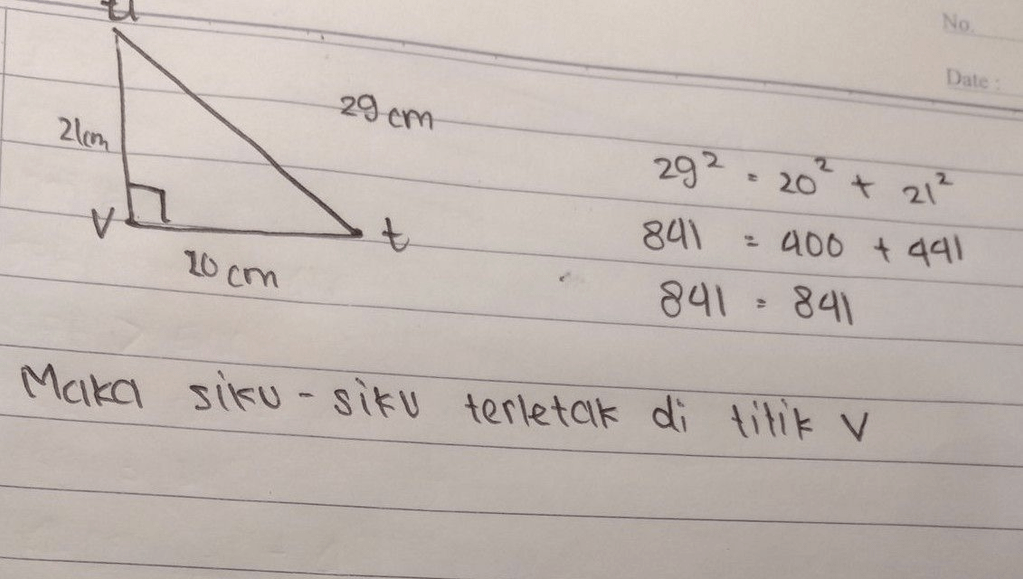 No.
Date :
u
21cm
29 cm
V
t
20 cm
29² = 20² + 21²
841 = 400 + 441
841 = 841
Maka siku-siku terletak di titik V